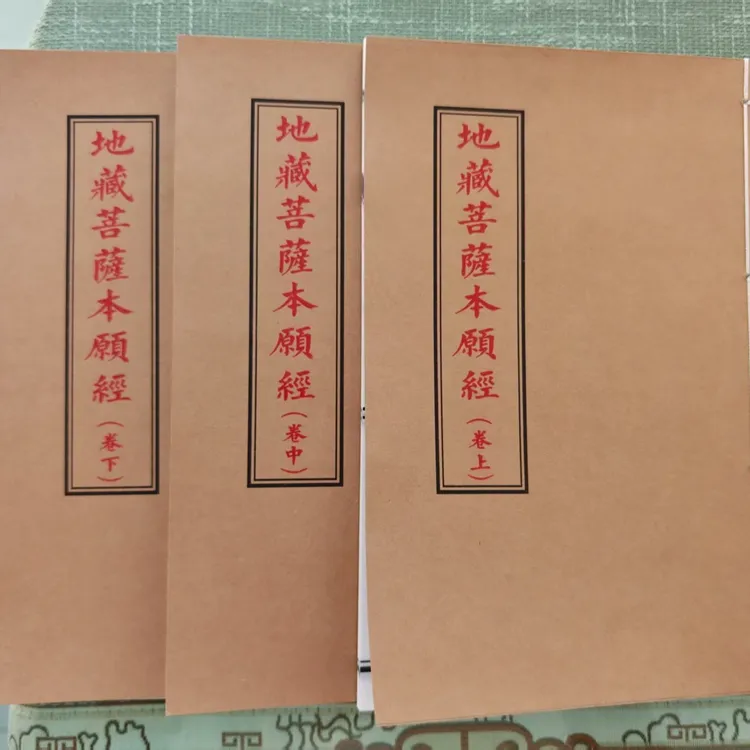 地藏菩薩本願經(卷上)
地藏菩薩本願經(卷中)
地藏菩薩本願經(卷下)